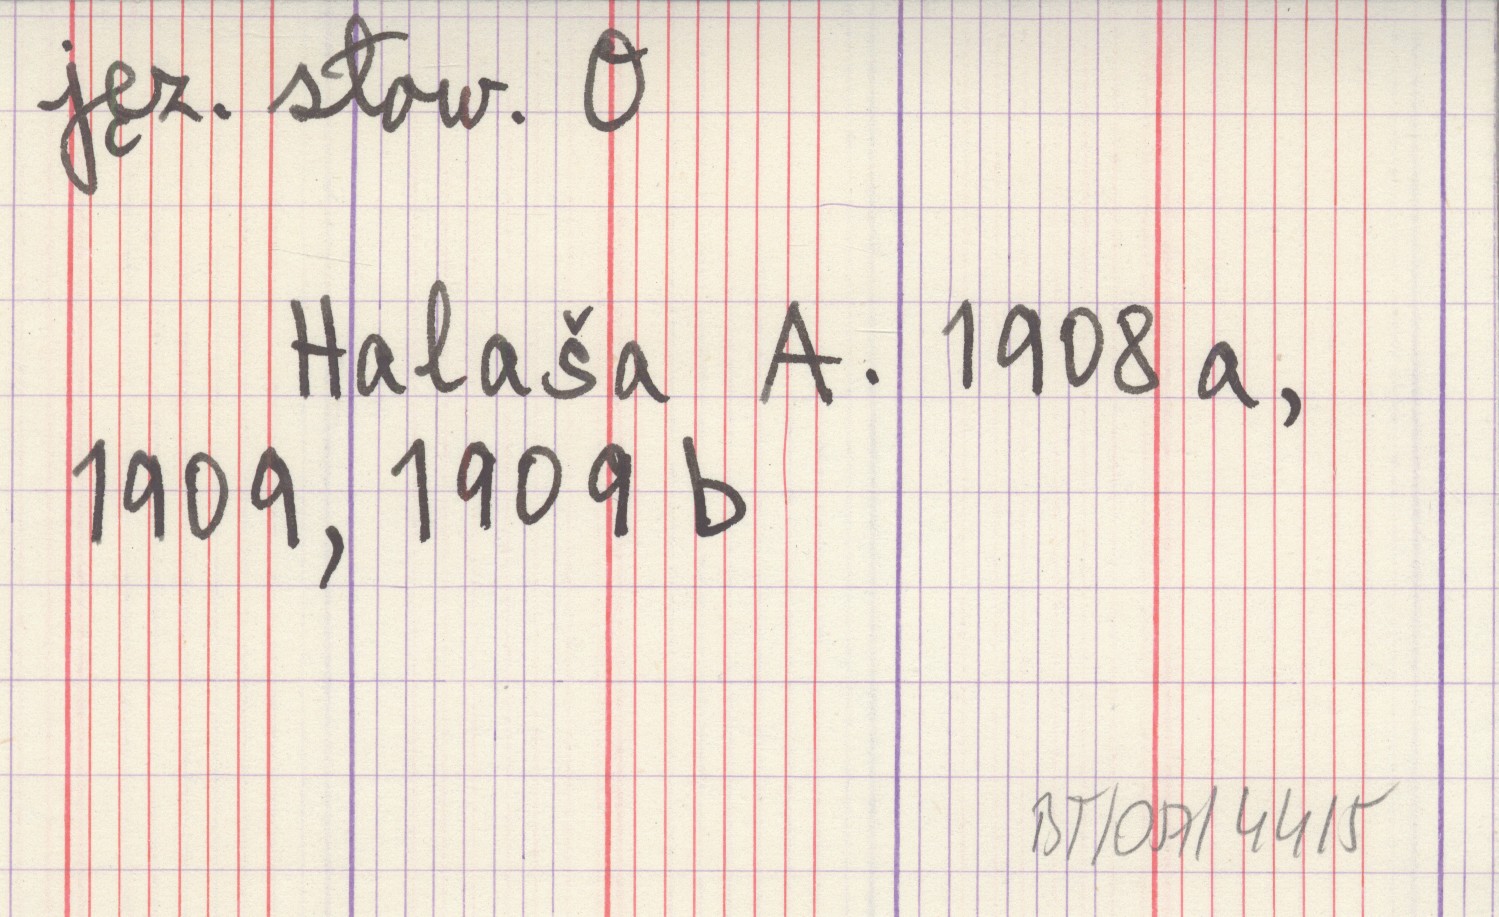 jęz. słow. O
Halaša A. 1908 a,
1909, 1909 b
BT/057/4415